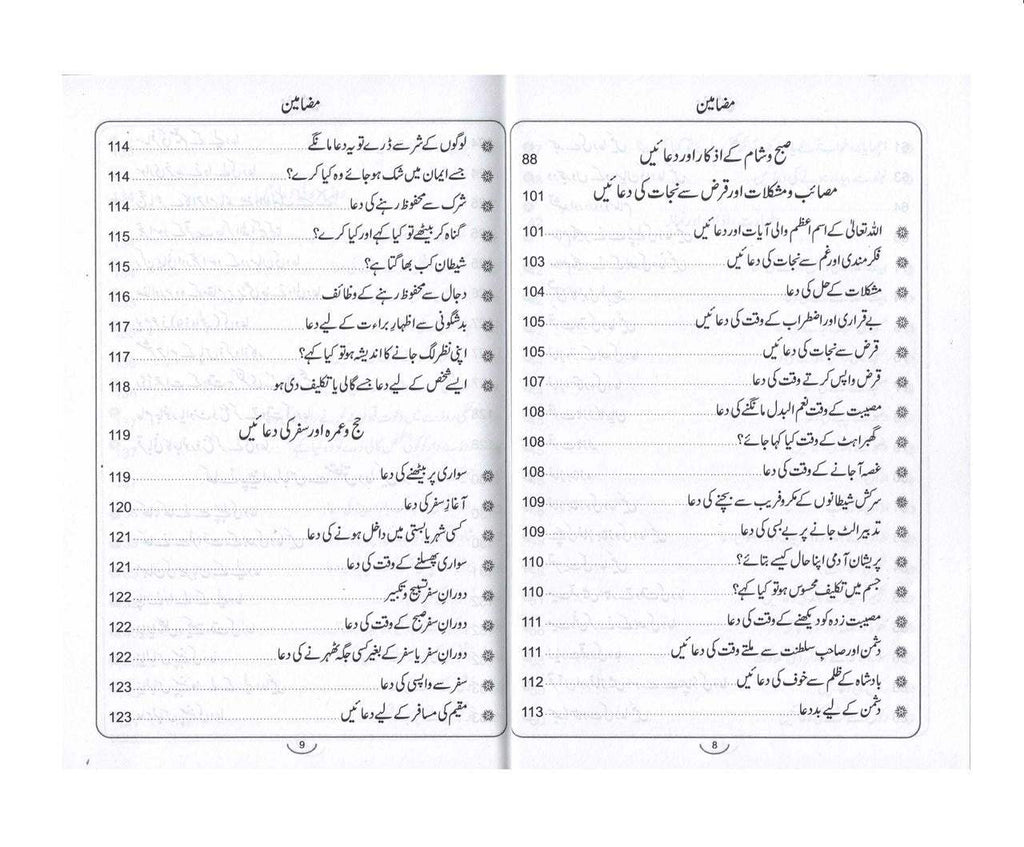 مضامین
صبح و شام کے اذکار اور دعائیں 88
مصائب و مشکلات اور قرض سے نجات کی دعائیں 101
اللہ تعالیٰ کے اسم اعظم والی آیات اور دعائیں 101
فکرمندی اور غم سے نجات کی دعائیں 103
مشکلات کے حل کی دعا 104
بے قراری اور اضطراب کے وقت کی دعائیں 105
قرض سے نجات کی دعائیں 105
قرض واپس کرتے وقت کی دعا 107
مصیبت کے وقت نعم البدل مانگنے کی دعا 108
گھبراہٹ کے وقت کیا کہا جائے؟ 108
غصہ آجانے کے وقت کی دعا 108
سرکش شیطانوں کے مکر و فریب سے بچنے کی دعا 109
تدبیر الٹ جانے پر بے بسی کی دعا 109
پریشان آدمی اپنا حال کیسے بتائے؟ 110
جسم میں تکلیف محسوس ہو تو کیا کہے؟ 110
مصیبت زدہ کو دیکھنے کے وقت کی دعا 111
دشمن اور صاحبِ سلطنت سے ملتے وقت کی دعائیں 111
بادشاہ کے ظلم سے خوف کی دعائیں 112
دشمن کے لیے بددعا 113
8
مضامین
لوگوں کے شر سے ڈرے تو یہ دعا مانگے 114
جسے ایمان میں شک ہو جائے وہ کیا کرے؟ 114
شرک سے محفوظ رہنے کی دعا 114
گناہ کر بیٹھے تو کیا کہے اور کیا کرے؟ 115
شیطان کب بھاگتا ہے؟ 115
دجال سے محفوظ رہنے کے وظائف 116
بدشگونی سے اظہارِ براءت کے لیے دعا 117
اپنی نظر لگ جانے کا اندیشہ ہو تو کیا کہے؟ 117
ایسے شخص کے لیے دعا جسے گالی یا تکلیف دی ہو 118
حج و عمرہ اور سفر کی دعائیں 119
سواری پر بیٹھنے کی دعا 119
آغازِ سفر کی دعا 120
کسی شہر یا بستی میں داخل ہونے کی دعا 121
سواری پھسلنے کے وقت کی دعا 121
دورانِ سفر تسبیح و تکبیر 122
دورانِ سفر صبح کے وقت کی دعا 122
دورانِ سفر یا سفر کے بغیر کسی جگہ ٹھہرنے کی دعا 122
سفر سے واپسی کی دعا 123
مقیم کی مسافر کے لیے دعائیں 123
9